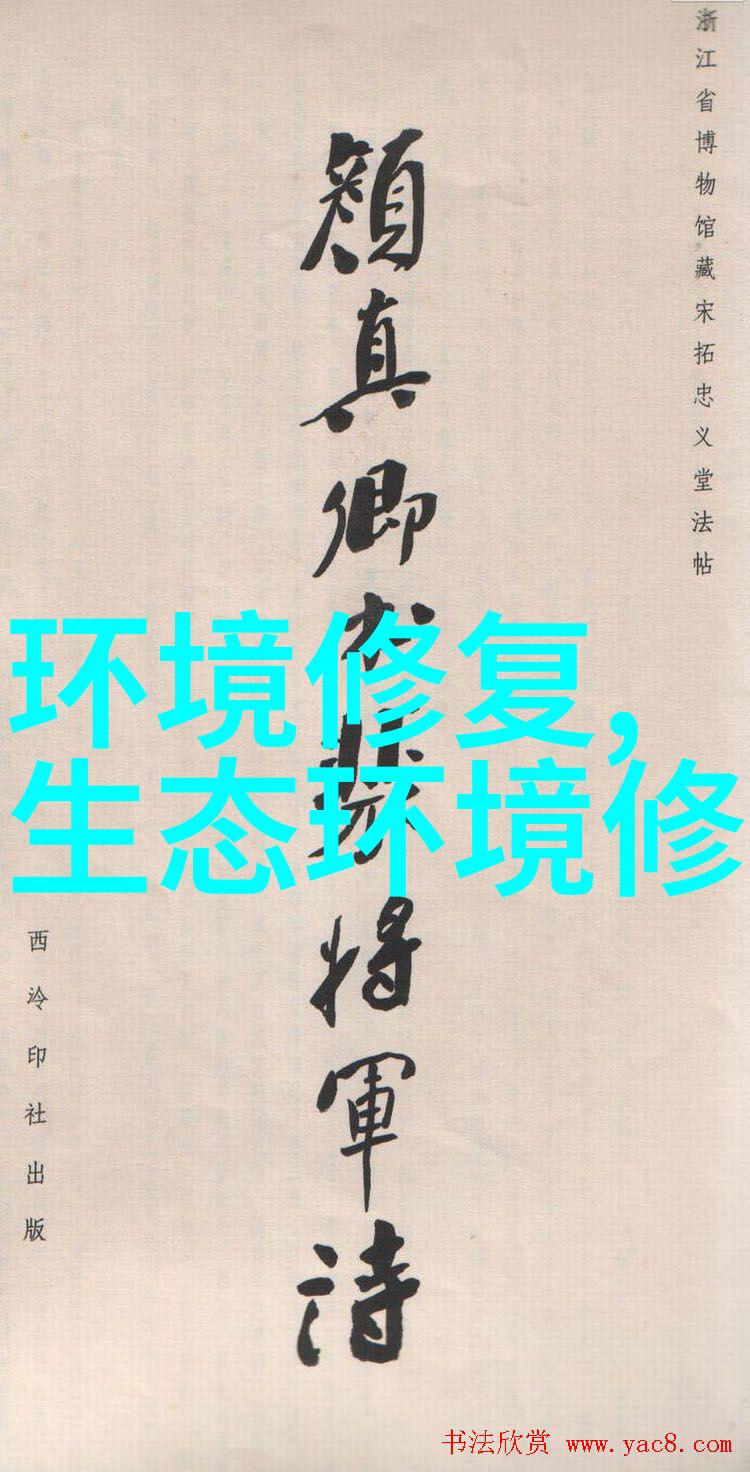 浙江省博物馆藏宋拓忠义堂法帖
顏真卿书裴将軍诗
环境修复,
生态环境修
西泠印社出版
书法欣赏 www.yac8.com